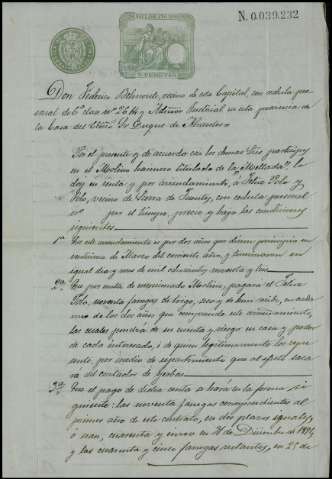 N. 0.039.232
Don Federico Belmonte, vecino de esta Capital, con cedula per-
sonal de 6ª clase nº 2614 y Admor. Provincial en esta provincia de
la Casa del Excmo. Sr. Duque de Abrantes
Por el presente y de acuerdo con los demas Sres. participes
en el Molino harinero titulado de la doy en renta y por arrendamiento, á Felix Polo y
Polo, vecino de Sierra de Fuentes, con cedula personal
nº por el tiempo, precio y bajo las condiciones
siguientes
1ª Este arrendamiento es por dos años que dieron principio en
veinticinco de Marzo del corriente año, y terminaran en
igual dia y mes de mil ochocientos noventa y tres
2ª Por la renta de mencionado Molino, pagará el Felix
Polo, noventa fanegas de trigo, seco y de buen recibo, en cada
uno de los dos años que comprende este arrendamiento,
las cuales pondrá de su cuenta y riesgo en casa y poder
de cada interesado, ó de quien legitimamente les repre-
sente, por medio de repartimiento que al efecto saca-
rá del contador de yerbas
3ª Que el pago de dicha renta a hará en la forma si-
guiente: las noventa fanegas correspondientes al
primer año de este contrato, en dos plazos iguales,
ó sean, cuarenta y cinco en 31 de Diciembre de 1891,
y las cuarenta y cinco fanegas restantes, en 25 de